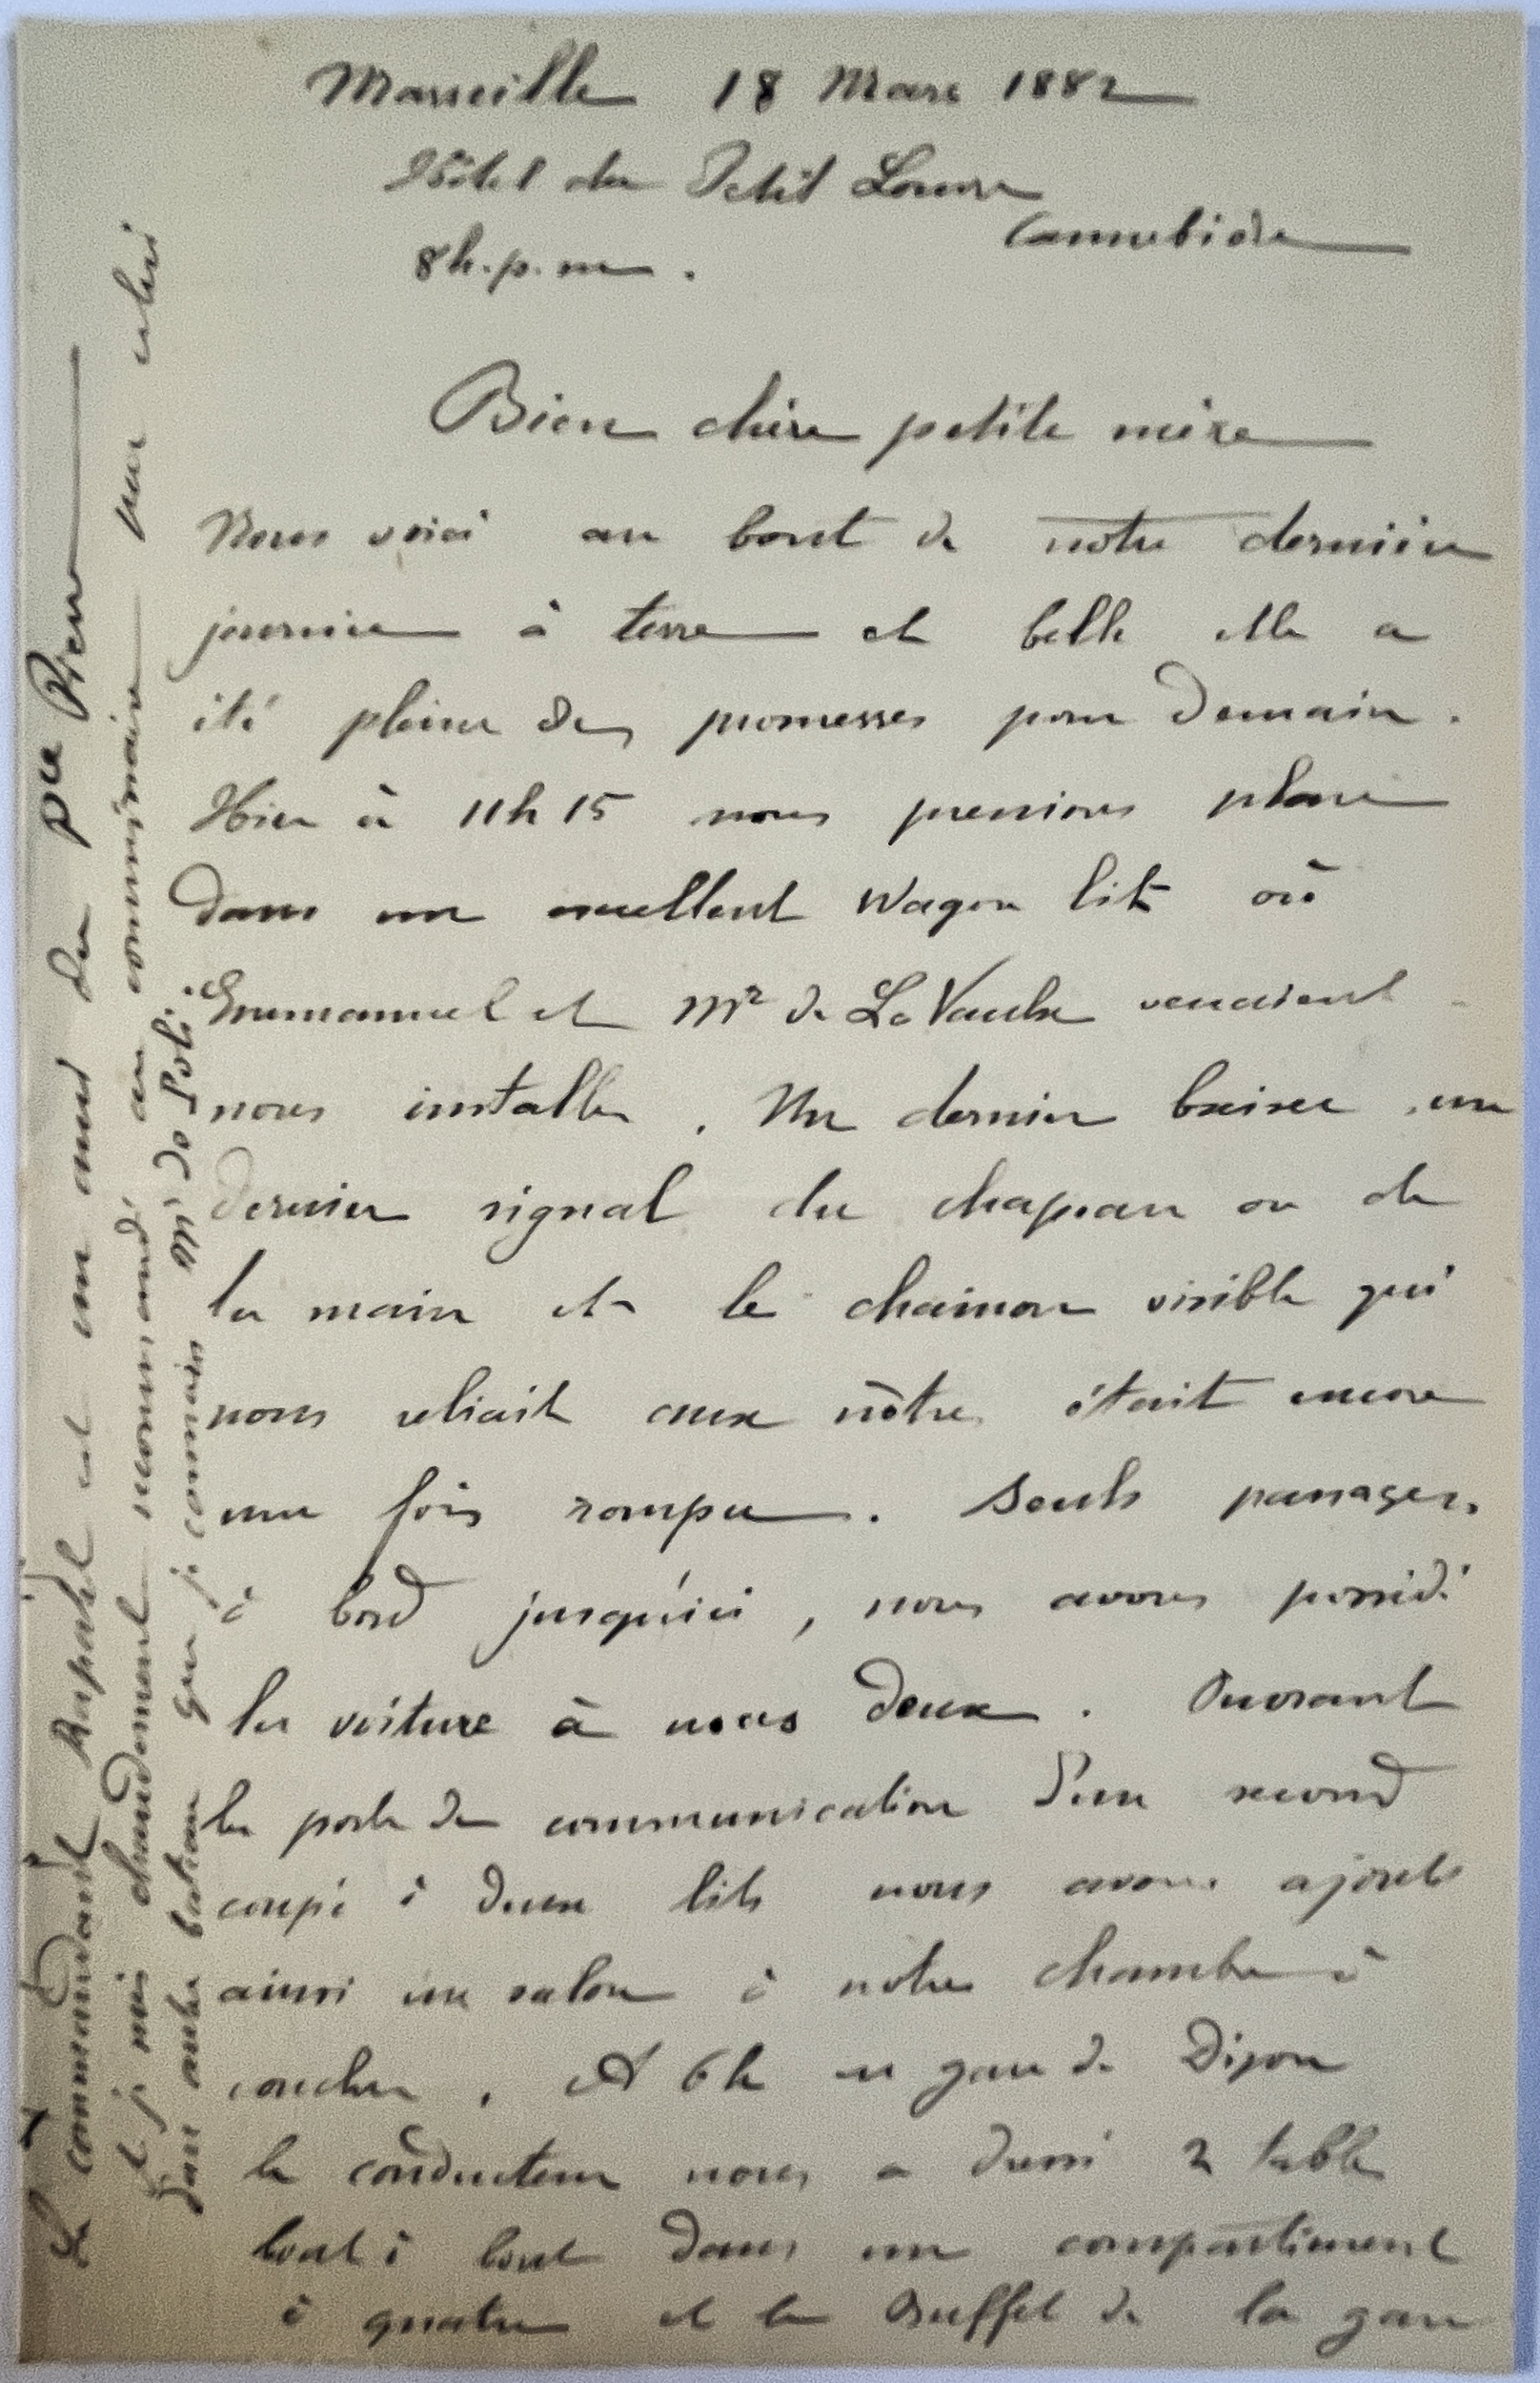 Marseille 18 Mars 1882
Hôtel du Petit Louvre
Cannebière
8h. p. m.
Bien chère petite mère
Nous voici au bout de notre dernière
journée à terre et belle elle a
été pleine de promesses pour demain.
Hier à 11h 15 nous prenions place
dans un excellent wagon lit où
Emmanuel et Mr de La Vaulx venaient
nous installer. Un dernier baiser, un
dernier signal du chapeau ou de
la main et le chainon visible qui
nous reliait aux nôtres était encore
une fois rompu. Seuls passagers
à bord jusqu'ici, nous avons possédé
la voiture à nous deux. Ouvrant
la porte de communication d'un second
coupé à deux lits nous avons ajouté
ainsi un salon à notre chambre à
coucher. A 6h en gare de Dijon
le conducteur nous a dressé 2 table
bout à bout dans un compartiment
à quatre et le Buffet de la gare
Le commandant Rapatel est un ami du Pce Pierre
et je suis chaudement recommandé au commissaire par celui
d'un autre bateau que je connais Mr de Poli.